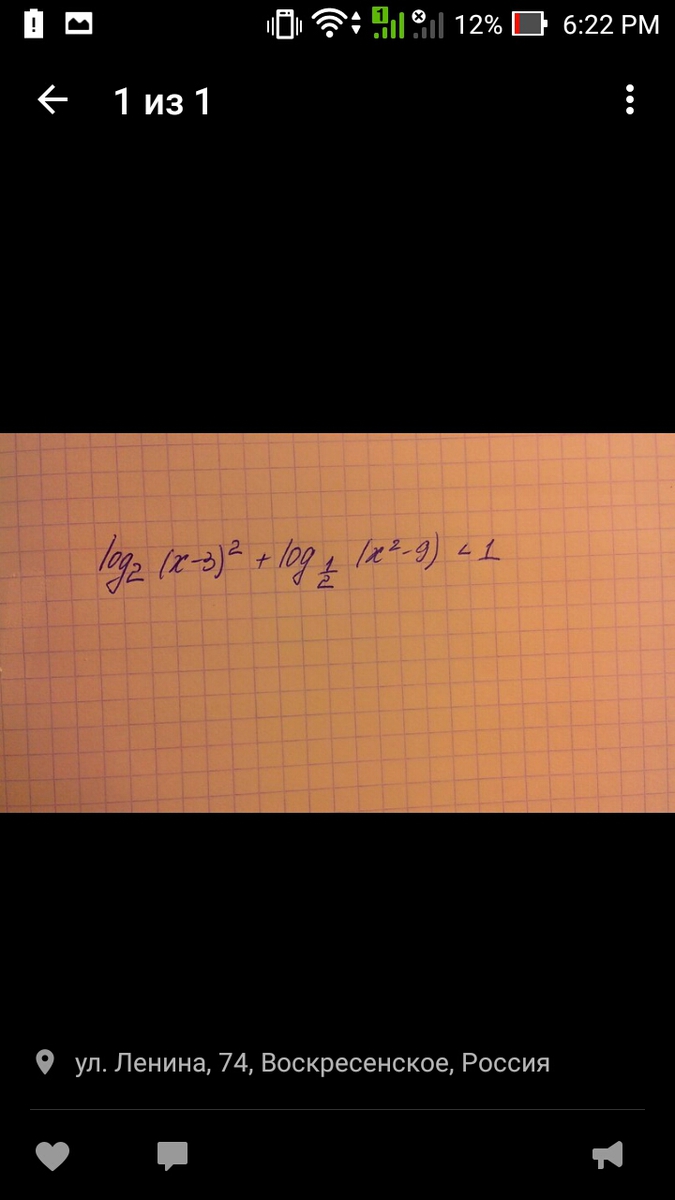 1 12% 6:22 PM
1 из 1
log₂ (x-3)² + log_{1/2} (x²-9) < 1
ул. Ленина, 74, Воскресенское, Россия